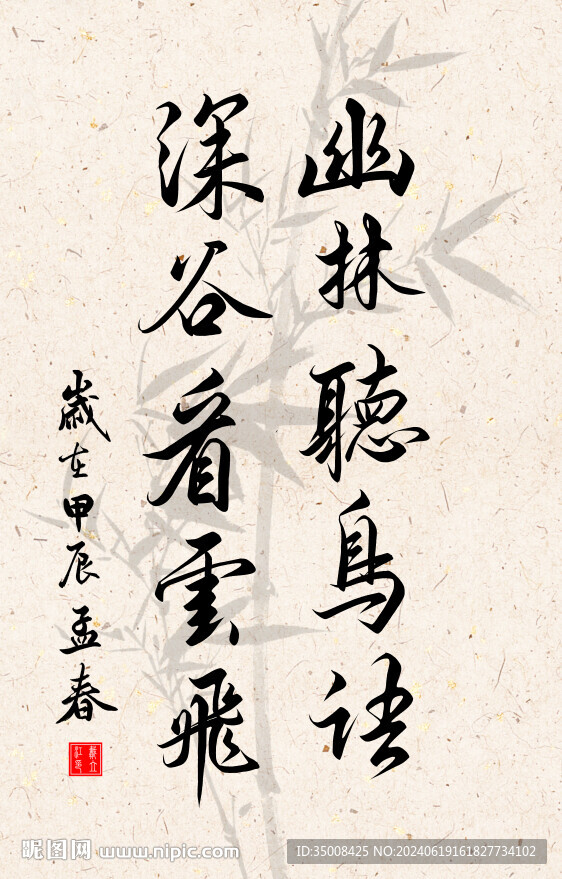 幽林聽鳥語
深谷看雲飛
歲在甲辰孟春
昵图网 www.nipic.com
ID:35008425 NO:20240619161827734102